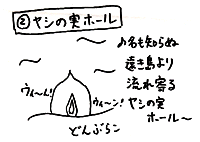 ②ヤシの実ホール
〜
〜
〜
名も知らぬ
遠き島より
流れ寄る
ヤシの実
ホール〜
ウィーん!
ウィーン!
どんぶらこ